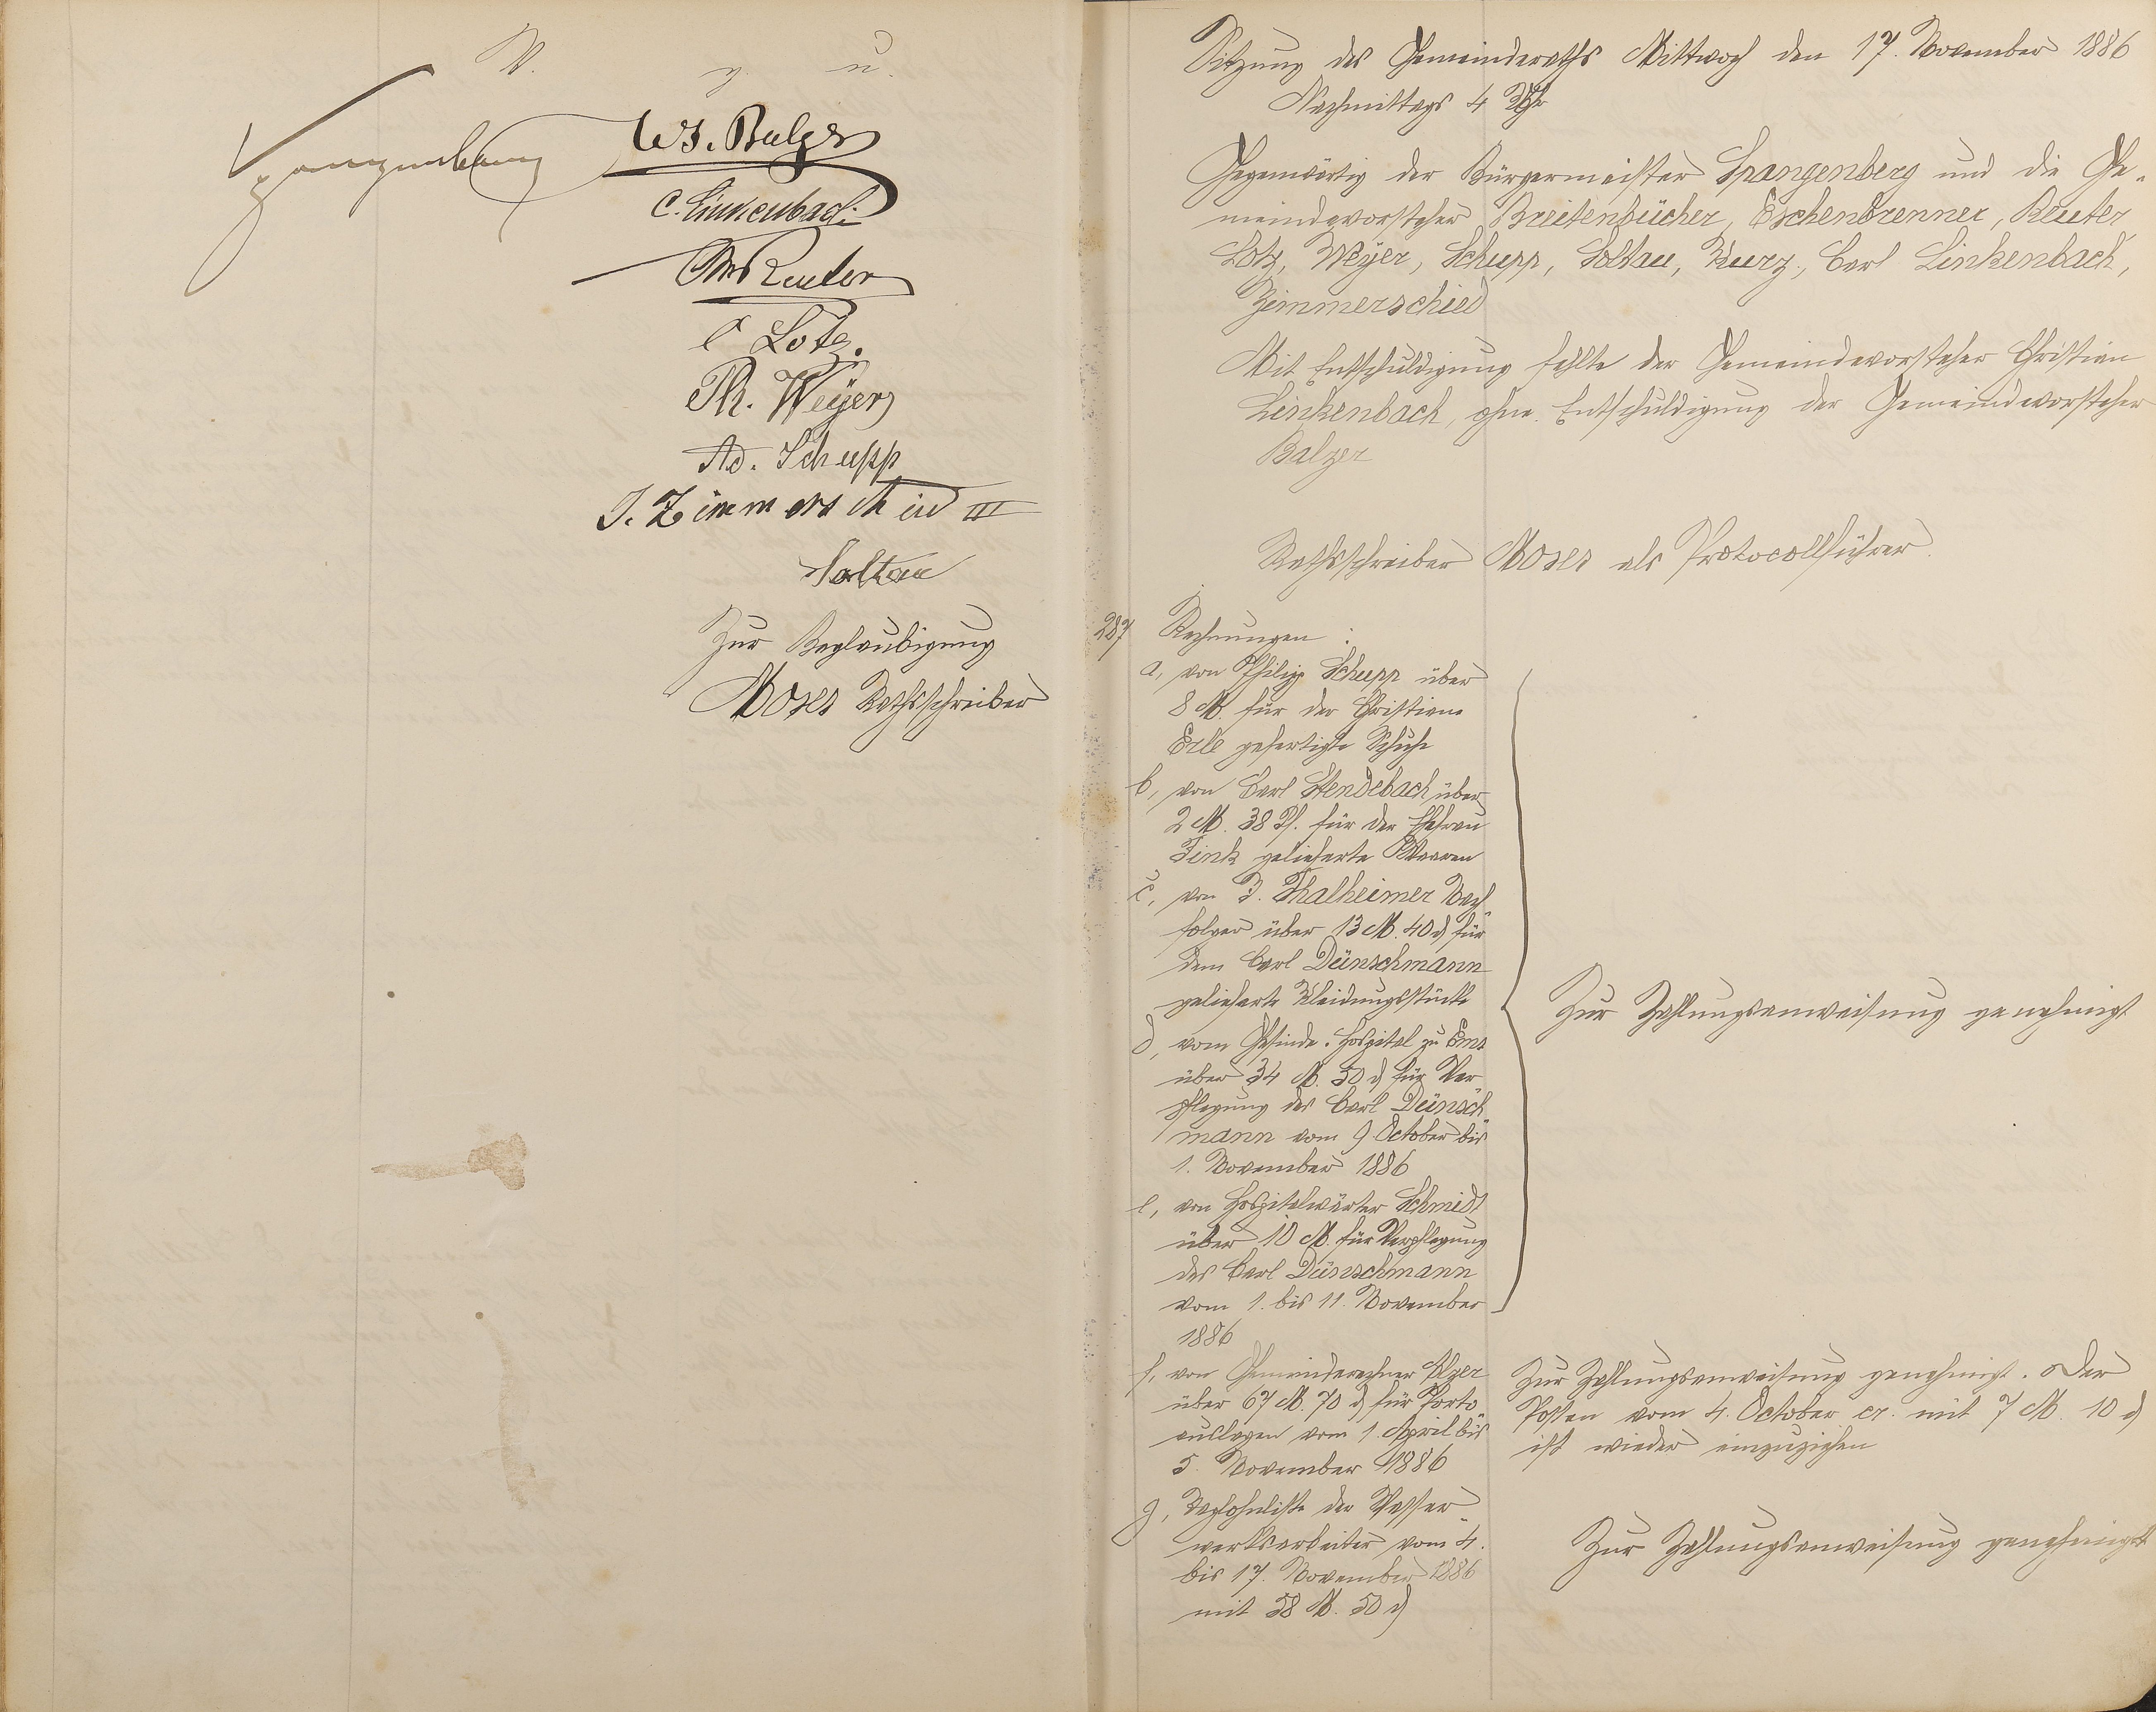 V. g. u.
Spangenberg
Ws. Balzer
C. Linkenbach
Reuter
C Lotz.
Ph. Weyer
Ad. Schupp
J. Zimmerschied III
Soltau
Zur Beglaubigung
Moses Rathsschreiber
Sitzung des Gemeinderaths Mittwoch den 17. November 1886
Nachmittags 4 Uhr
Gegenwärtig der Bürgermeister Spangenberg und die Ge-
meindevorsteher Breitenbücher, Eschenbrenner, Reuter,
Lotz, Weyer, Schupp, Soltau, Kurz, Carl Linkenbach,
Zimmerschied
Mit Entschuldigung fehlte der Gemeindevorsteher Christian
Linkenbach, ohne Entschuldigung der Gemeindevorsteher
Balzer
Rathsschreiber Moses als Protocollführer.
287 Rechnungen:
a, von Philipp Schupp über
8 M. für der Christiane
Erle gefertigte Schuhe
b, von Carl Stendebach über
2 M. 38 Pf. für der Ehefrau
Fink gelieferte Waaren
c, von J. Thalheimer Nach-
folger über 13 M. 40 ₰ für
dem Carl Dünschmann
gelieferte Kleidungsstücke
d, vom Gesinde-Hospital zu Ems
über 34 M. 50 ₰ für Ver-
pflegung des Carl Dünsch-
mann vom 9 October bis
1. November 1886
e, von Hospitalwärter Schmidt
über 10 M. für Verpflegung
des Carl Dünschmann
vom 1. bis 11. November
1886
Zur Zahlungsanweisung genehmigt
f, von Gemeinderechner
über 67 M. 70 ₰ für Porto-
auslagen vom 1. April bis
5. November 1886
Zur Zahlungsanweisung genehmigt. Der
Posten vom 4. October cr. mit 7 M. 10 ₰
ist wieder einzuziehen
g, Taglohnliste der Wasser-
werksarbeiter vom 4.
bis 17. November 1886
mit 58 M. 50 ₰
Zur Zahlungsanweisung genehmigt